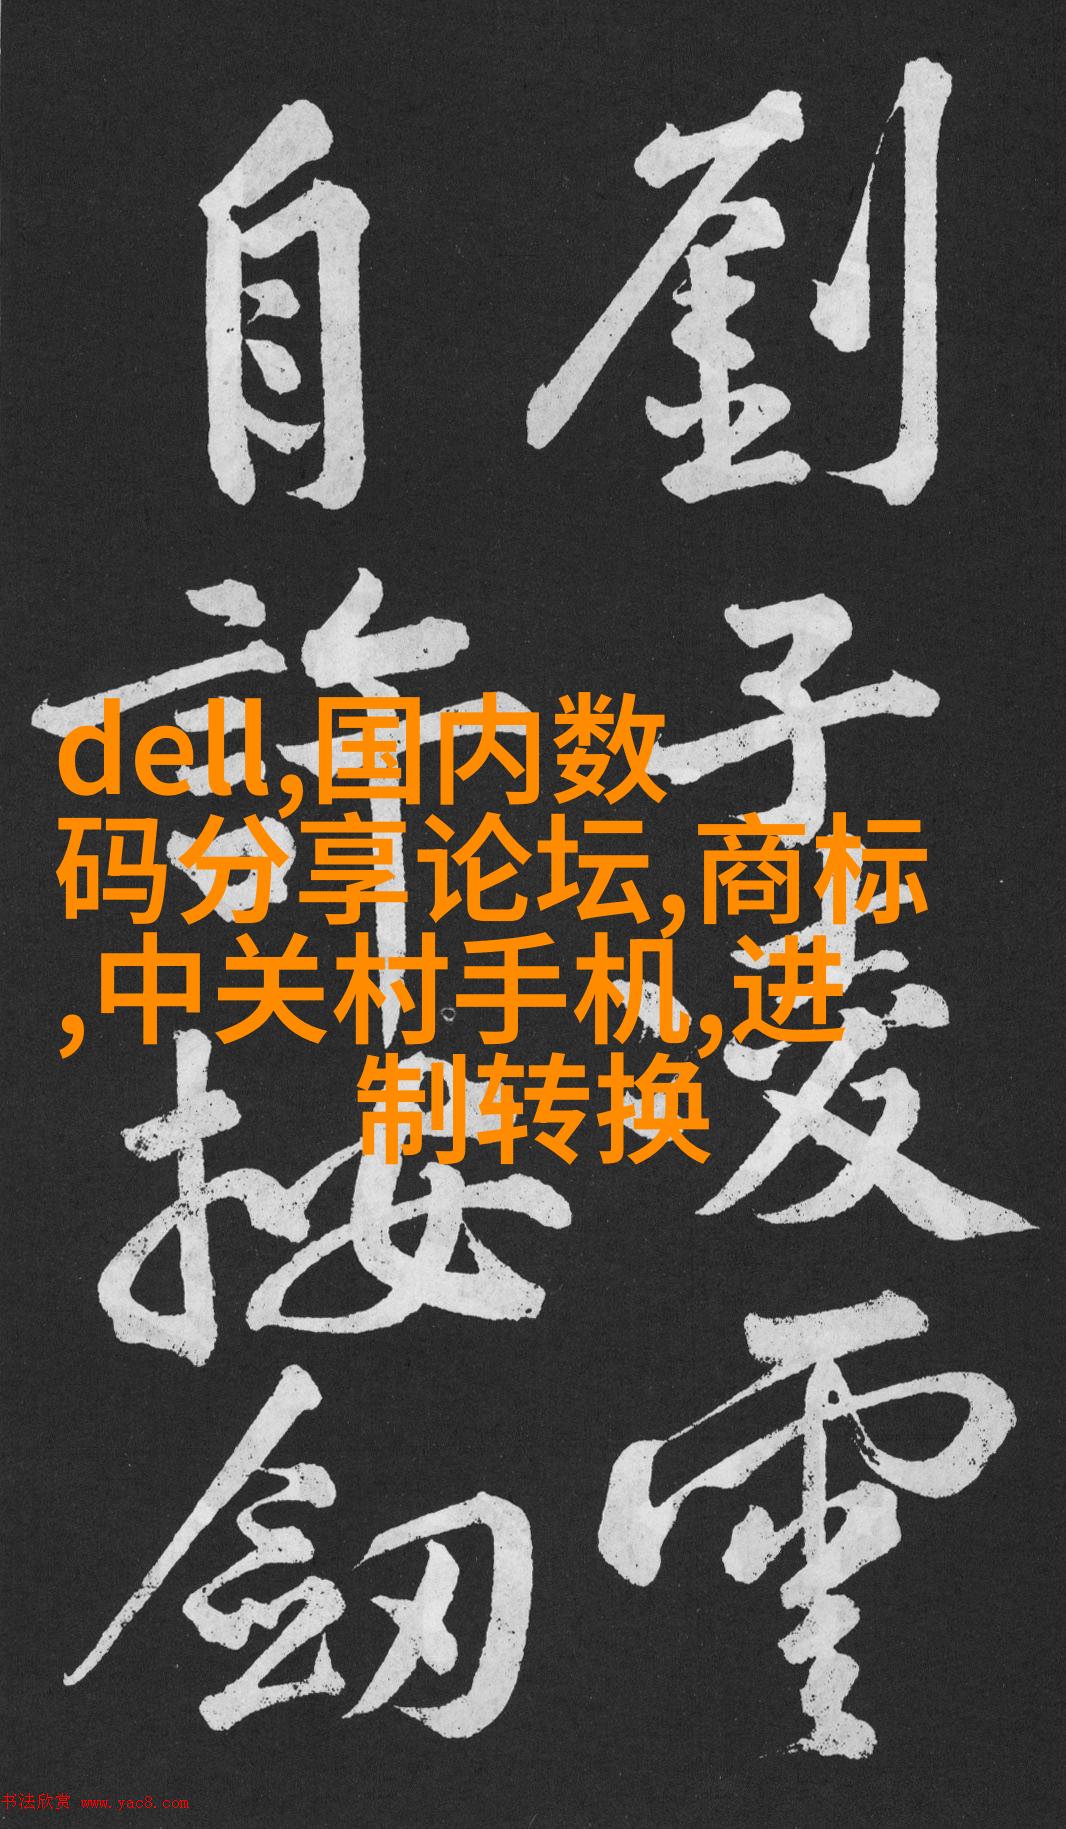 劉子
自許按劍
dell,国内数
码分享论坛,商标
,中关村手机,进
制转换
书法欣赏 www.yac8.com